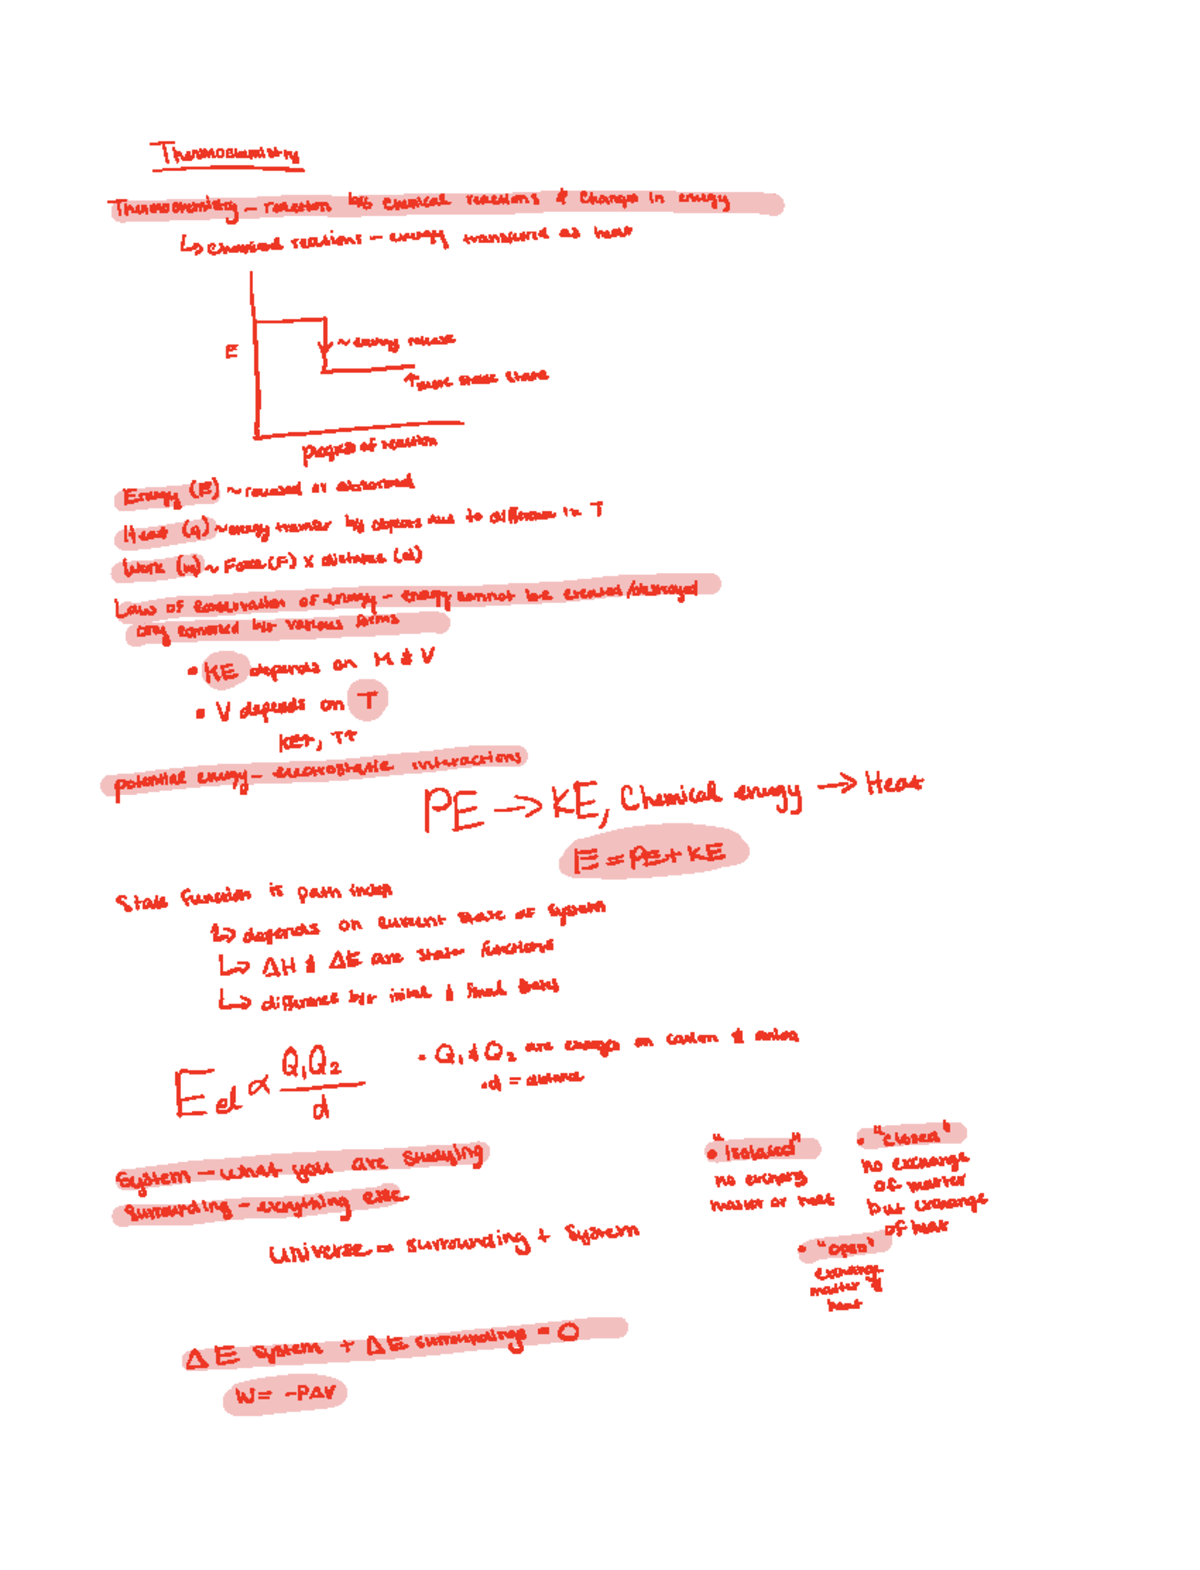 Thermochemistry
Thermochemistry - reaction b/t chemical reactions & changes in energy
↳ chemical reactions - energy transferred as heat
E
~ energy release
↑ more stable state
progress of reaction
Energy (E) ~ released or absorbed
Heat (q) ~ energy transfer b/t objects due to difference in T
Work (w) ~ Force (F) x distance (d)
Law of conservation of energy - energy cannot be created/destroyed
only converted b/t various forms
• KE depends on M & V
• V depends on T
KE↑, T↑
potential energy - electrostatic interactions
PE → KE, Chemical energy → Heat
E = PE + KE
State function is path indep
↳ depends on current state of system
↳ ΔH & ΔE are state functions
↳ difference b/t initial & final states
E el ∝ Q₁Q₂
d
• Q₁ & Q₂ are charges on cation & anion
• d = distance
System - what you are studying
Surrounding - everything else
Universe = surrounding + system
• "Isolated"
no exchang
matter or heat
• "closed"
no exchange
of matter
but exchange
of heat
• "open"
exchange
matter &
heat
ΔE system + ΔE surroundings = 0
W = -PΔV